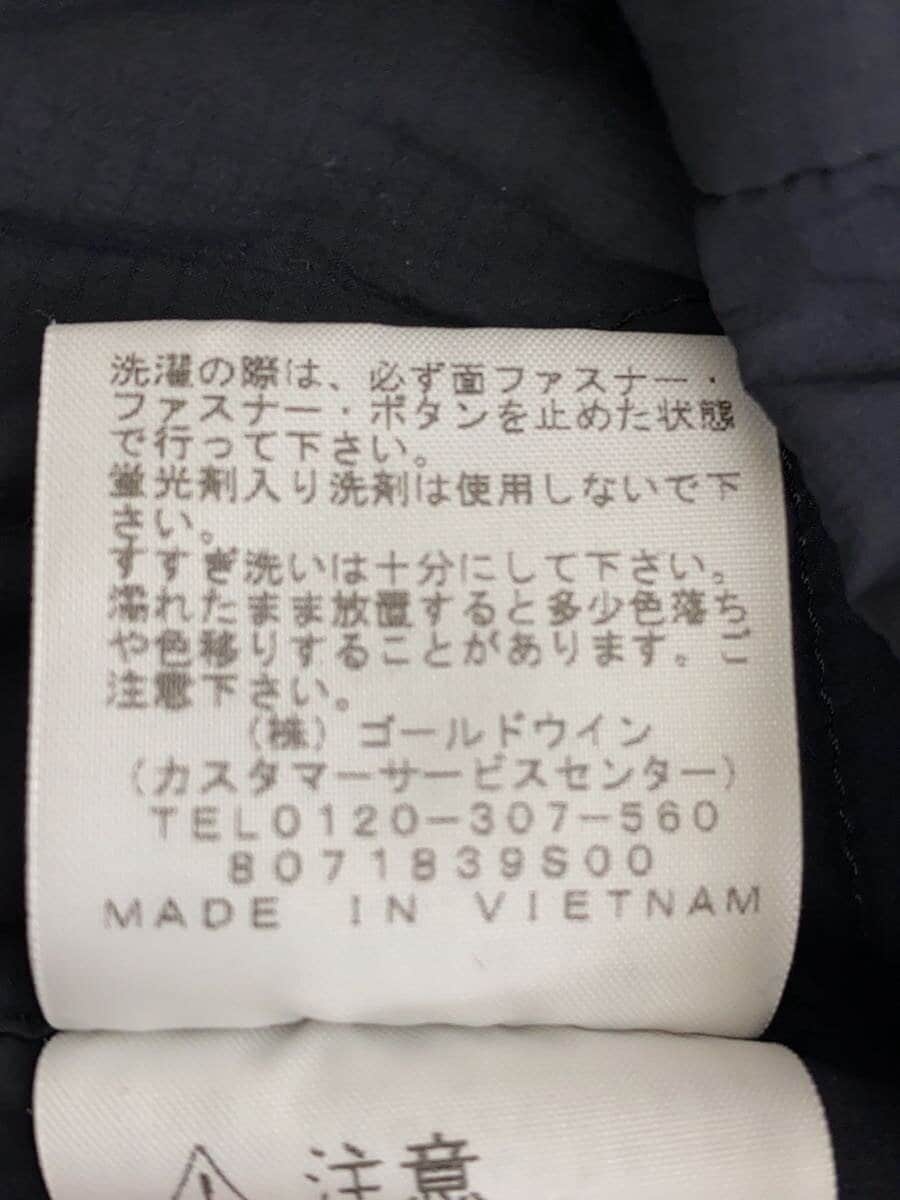 洗濯の際は、必ず面ファスナー・
ファスナー・ボタンを止めた状態
で行って下さい。
蛍光剤入り洗剤は使用しないで下
さい。
すすぎ洗いは十分にして下さい。
濡れたまま放置すると多少色落ち
や色移りすることがあります。ご
注意下さい。
(株)ゴールドウイン
(カスタマーサービスセンター)
TEL0120-307-560
8071839S00
MADE IN VIETNAM
注意